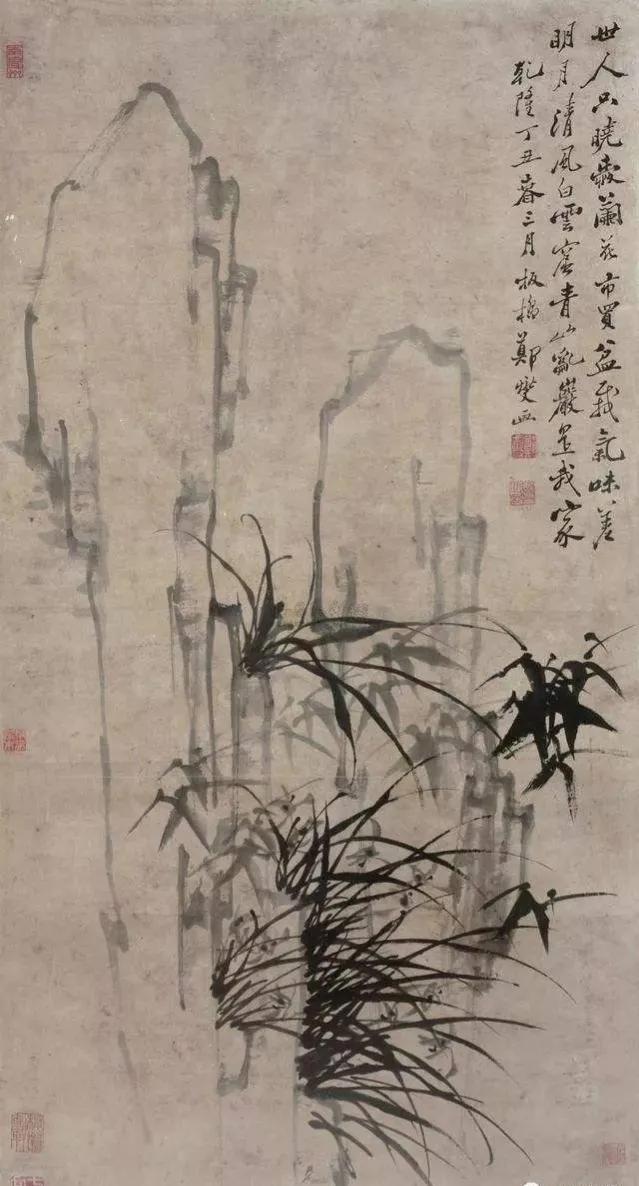 世人只曉愛蘭花市買盆栽氣味差
明月清風白雲窟青山亂巖是我家
乾隆丁丑春三月板橋鄭燮画